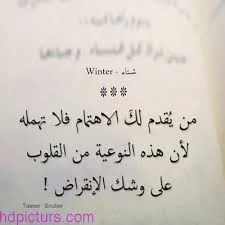 شتاء - Winter
***
من يُقدم لكَ الاهتمام فلا تهمله
لأن هذه النوعية من القلوب
على وشك الإنقراض !
Taeser Snuber
hdpicturs.com